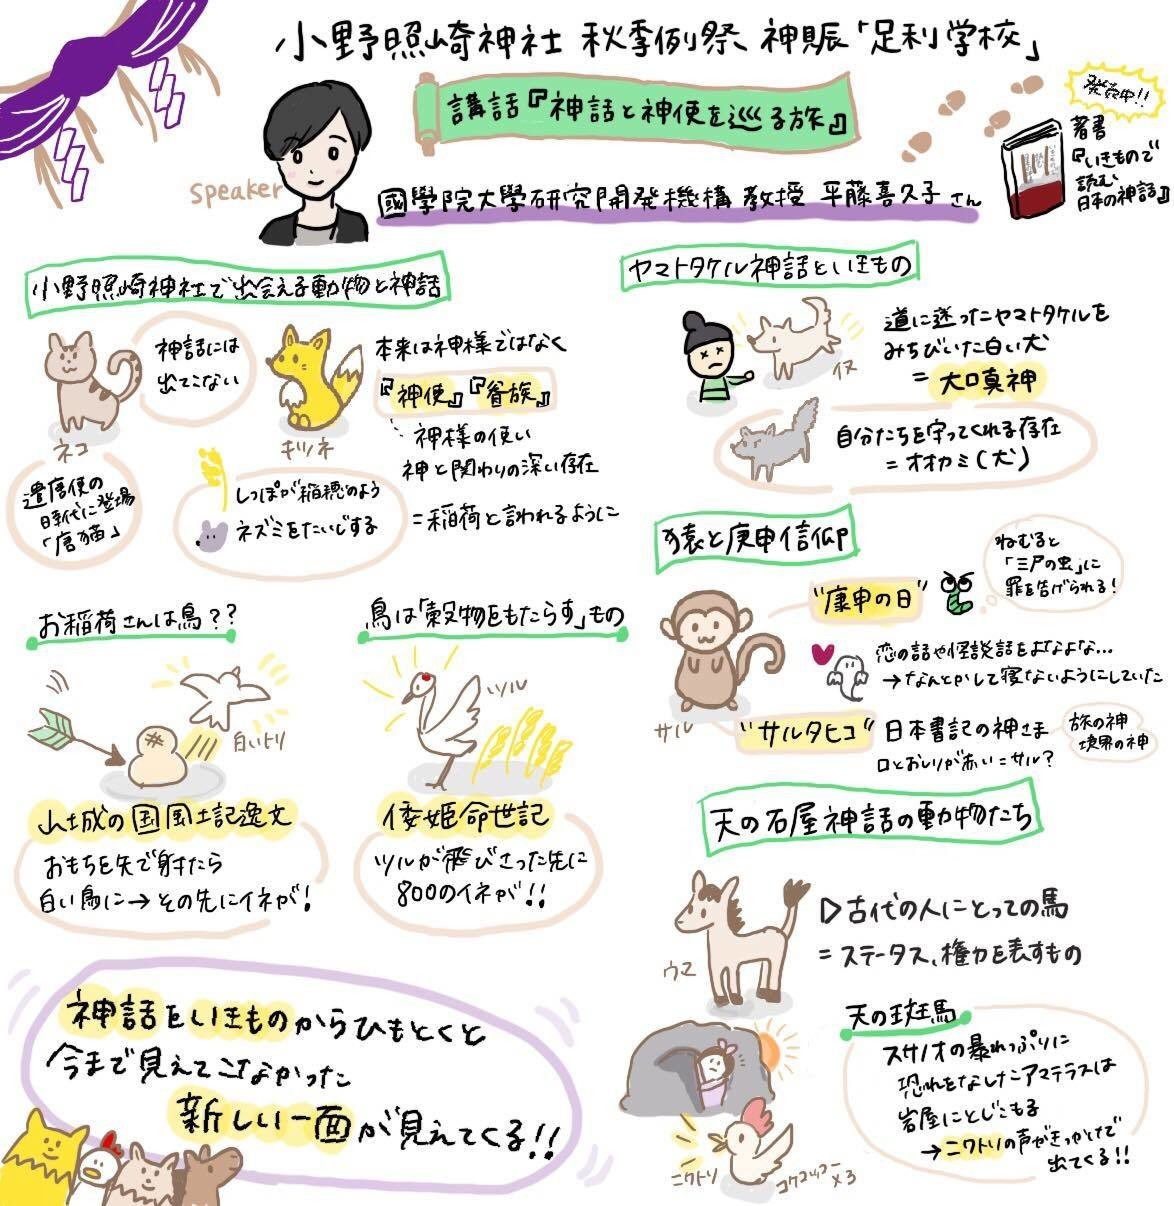 小野照崎神社 秋季例祭、神賑「足利学校」
講話『神話と神使を巡る旅』
speaker
國學院大學研究開発機構 教授 平藤喜久子さん
発売中!!
著書
『いきもので
読む
日本の神話』
小野照崎神社で出会える動物と神話
ネコ
神話には
出てこない
遣唐使の
時代に登場
「唐猫」
キツネ
しっぽが稲穂のよう
ネズミをたいじする
本来は神様ではなく
『神使』『眷族』
神様の使い
神と関わりの深い存在
=稲荷と言われるように
お稲荷さんは鳥??
白いトリ
山城の国風土記逸文
おもちを矢で射たら
白い鳥に→その先にイネが!
鳥は「穀物をもたらす」もの
ツル
倭姫命世記
ツルが飛びさった先に
800のイネが!!
神話をいきものからひもとくと
今まで見えてこなかった
新しい一面が見えてくる!!
ヤマトタケル神話といきもの
イヌ
道に迷ったヤマトタケルを
みちびいた白い犬
=大口真神
自分たちを守ってくれる存在
=オオカミ(犬)
猿と庚申信仰
サル
"庚申の日"
ねむると
「三尸の虫」に
罪を告げられる!
恋の話や怪談話をよなよな…
→なんとかして寝ないようにしていた
"サルタヒコ" 日本書記の神さま
口とおしりが赤い=サル?
旅の神
境界の神
天の石屋神話の動物たち
ウマ
▷古代の人にとっての馬
=ステータス、権力を表すもの
天の斑馬
スサノオの暴れっぷりに
恐れをなしたアマテラスは
岩屋にとじこもる
→ニワトリの声がきっかけで
出てくる!!
ニワトリ
コケコッコー
×3